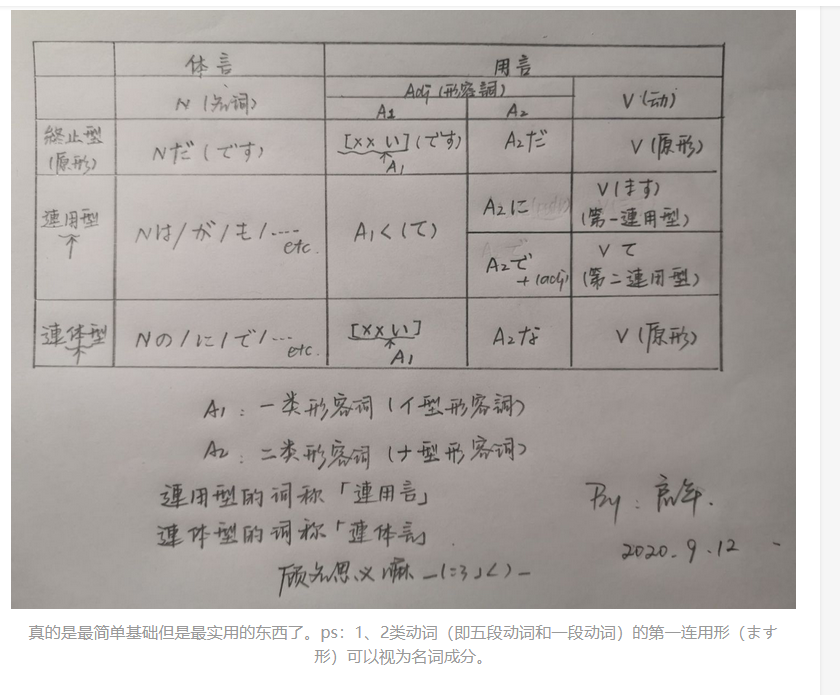 体言 用言
N (名词) Adj (形容詞) V (动)
A1 A2
終止型 Nだ (です) [xx い] (です) A2だ V (原形)
(原形) A1
連用型 Nは/が/も/…… etc. A1く(て) A2に V (ます)
(第一連用型)
A2で + (adj) V て
(第二連用型)
連体型 Nの/に/で/… etc. [xx い] A2な V (原形)
A1
A1: 一类形容词 (イ型形容詞)
A2: 二类形容词 (ナ型形容词)
連用型的词称「連用言」
連体型的词称「連体言」
By:
2020.9.12
顾名思义嘛
真的是最简单基础但是最实用的东西了。ps：1、2类动词（即五段动词和一段动词）的第一连用形（ます
形）可以视为名词成分。